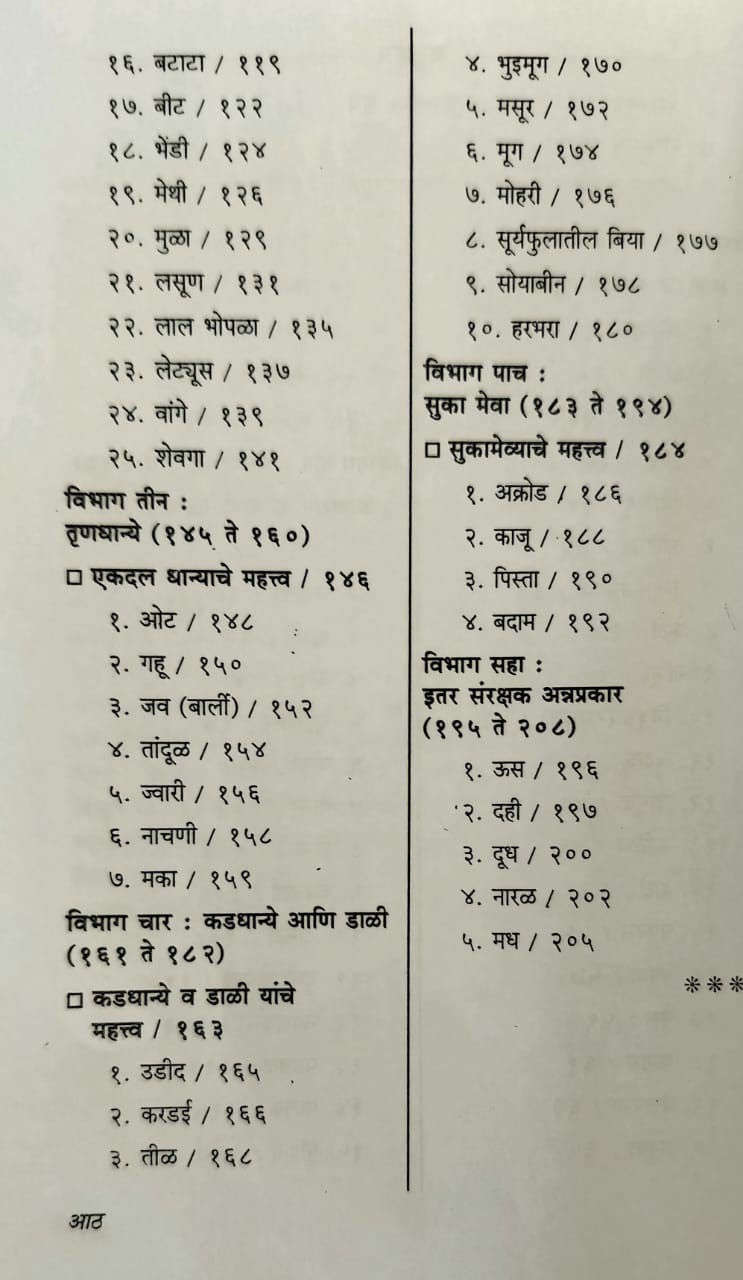 १६. बटाटा / ११९
१७. बीट / १२२
१८. भेंडी / १२४
१९. मेथी / १२६
२०. मुळा / १२९
२१. लसूण / १३१
२२. लाल भोपळा / १३५
२३. लेट्यूस / १३७
२४. वांगे / १३९
२५. शेवगा / १४१
विभाग तीन :
तृणधान्ये (१४५ ते १६०)
□ एकदल धान्याचे महत्त्व / १४६
१. ओट / १४८
२. गहू / १५०
३. जव (बार्ली) / १५२
४. तांदूळ / १५४
५. ज्वारी / १५६
६. नाचणी / १५८
७. मका / १५९
विभाग चार : कडधान्ये आणि डाळी
(१६१ ते १८२)
□ कडधान्ये व डाळी यांचे
महत्त्व / १६३
१. उडीद / १६५
२. करडई / १६६
३. तीळ / १६८
४. भुइमूग / १७०
५. मसूर / १७२
६. मूग / १७४
७. मोहरी / १७६
८. सूर्यफुलातील बिया / १७७
९. सोयाबीन / १७८
१०. हरभरा / १८०
विभाग पाच :
सुका मेवा (१८३ ते १९४)
□ सुकामेव्याचे महत्त्व / १८४
१. अक्रोड / १८६
२. काजू / १८८
३. पिस्ता / १९०
४. बदाम / १९२
विभाग सहा :
इतर संरक्षक अन्नप्रकार
(१९५ ते २०८)
१. ऊस / १९६
२. दही / १९७
३. दूध / २००
४. नारळ / २०२
५. मध / २०५
***
आठ